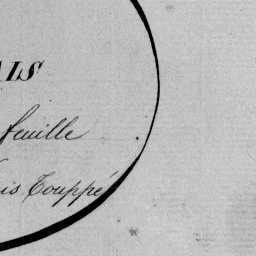 ALS
feuille
is Touppé